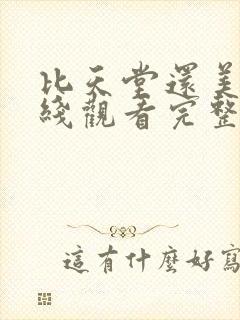 比天堂還美
綫觀看完整
這有什麼好寫